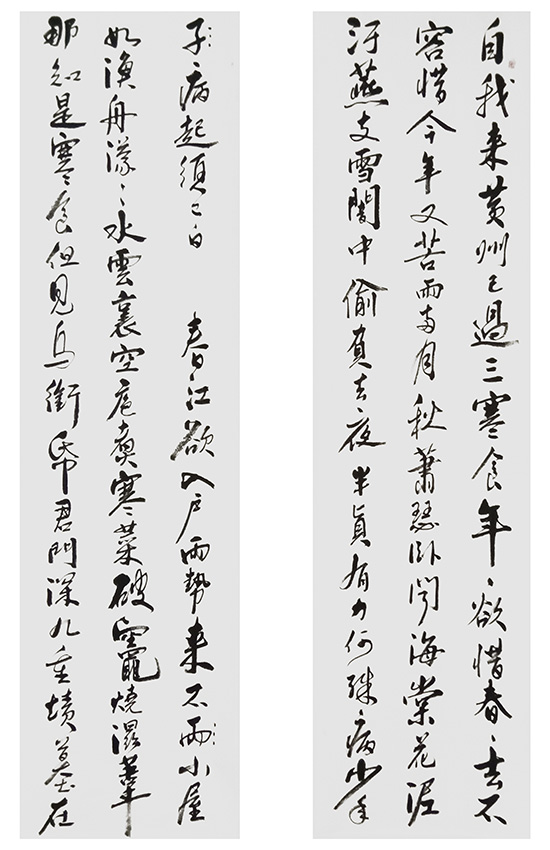 自我来黄州已過三寒食年〻欲惜春〻去不
容惜今年又苦雨兩月秋蕭瑟卧聞海棠花泥
汙燕支雪闇中偷負去夜半真有力何殊病少年
子病起須已白 春江欲入户雨勢来不雨小屋
如漁舟濛〻水雲裏空庖煮寒菜破竈燒濕葦
那知是寒食但見烏銜帋君門深九重墳墓在